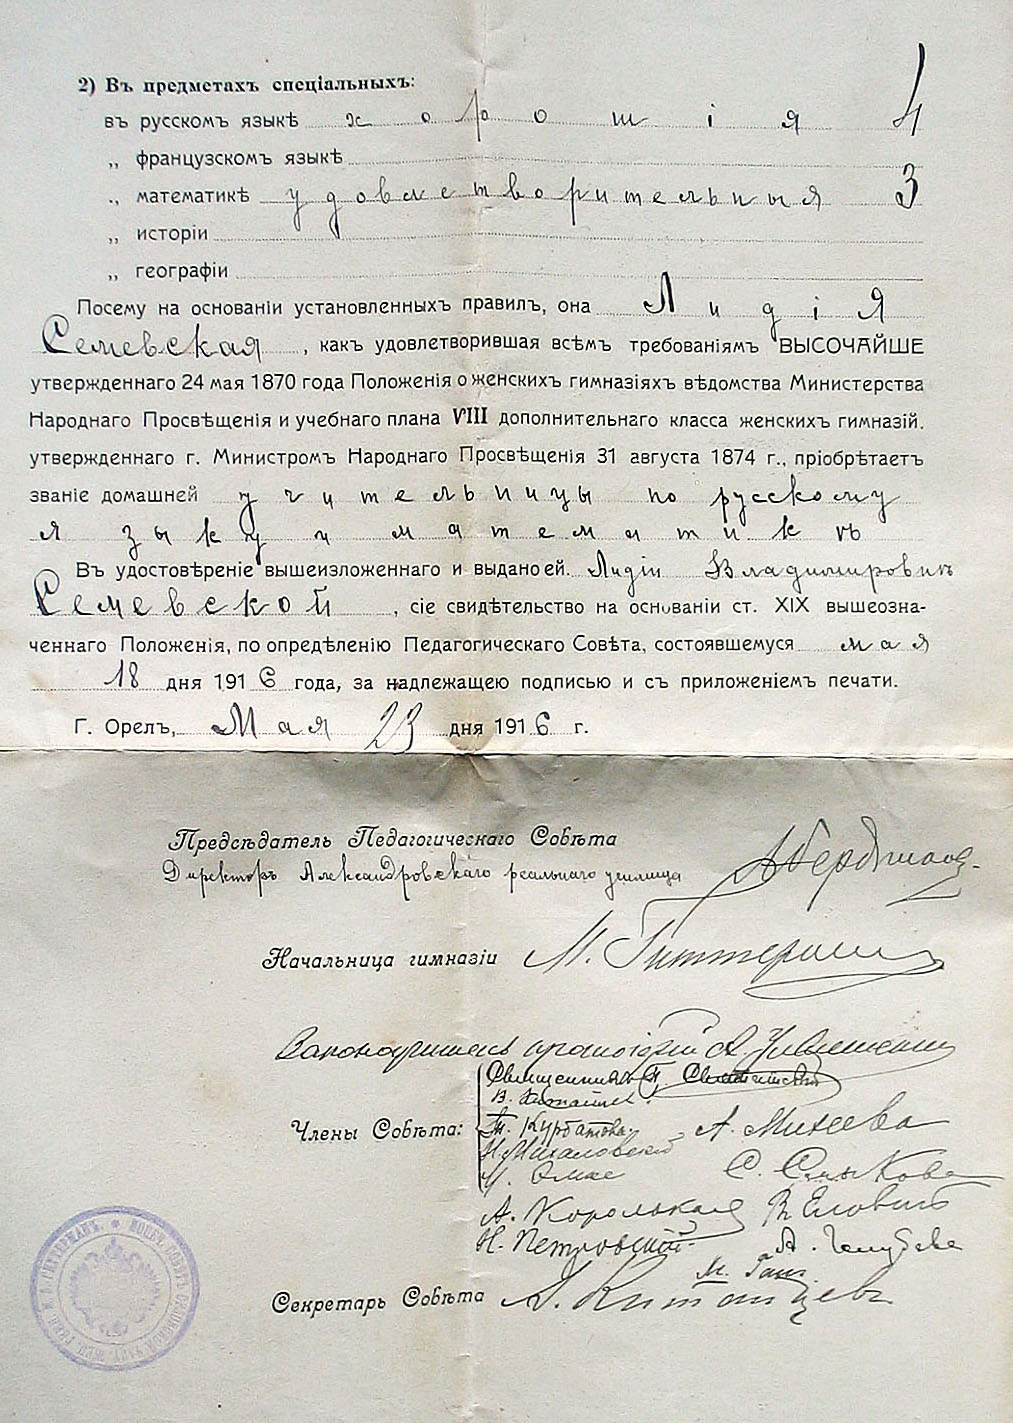 2) Въ предметахъ спеціальныхъ:
въ русскомъ языкѣ хорошія 4
„ французскомъ языкѣ
„ математикѣ удовлетворительныя 3
„ исторіи
„ географіи
Посему на основаніи установленныхъ правилъ, она Лидія
Семевская, какъ удовлетворившая всѣмъ требованіямъ ВЫСОЧАЙШЕ
утвержденнаго 24 мая 1870 года Положенія о женскихъ гимназіяхъ вѣдомства Министерства
Народнаго Просвѣщенія и учебнаго плана VIII дополнительнаго класса женскихъ гимназій.
утвержденнаго г. Министромъ Народнаго Просвѣщенія 31 августа 1874 г., пріобрѣтаетъ
званіе домашней учительницы по русскому
языку и математикѣ
Въ удостовѣреніе вышеизложеннаго и выдано ей. Лидіи Владимировнѣ
Семевской, сіе свидѣтельство на основаніи ст. XIX вышеозна-
ченнаго Положенія, по опредѣленію Педагогическаго Совѣта, состоявшемуся мая
18 дня 1916 года, за надлежащею подписью и съ приложеніемъ печати.
Г. Орелъ, Мая 23 дня 1916 г.
Предсѣдатель Педагогическаго Совѣта
Директоръ Александровскаго реальнаго училища
Начальница гимназіи М. Гиттерман
Законоучитель протоіерей А.
Священникъ П.
В.
Члены Совѣта: Курбатова А. Михеева
Н. Михаловскій
М. С.
А. В. Еловиг
Н. Петровскій А. Голубева
М. Ганг.
Секретарь Совѣта А. Китайцевъ